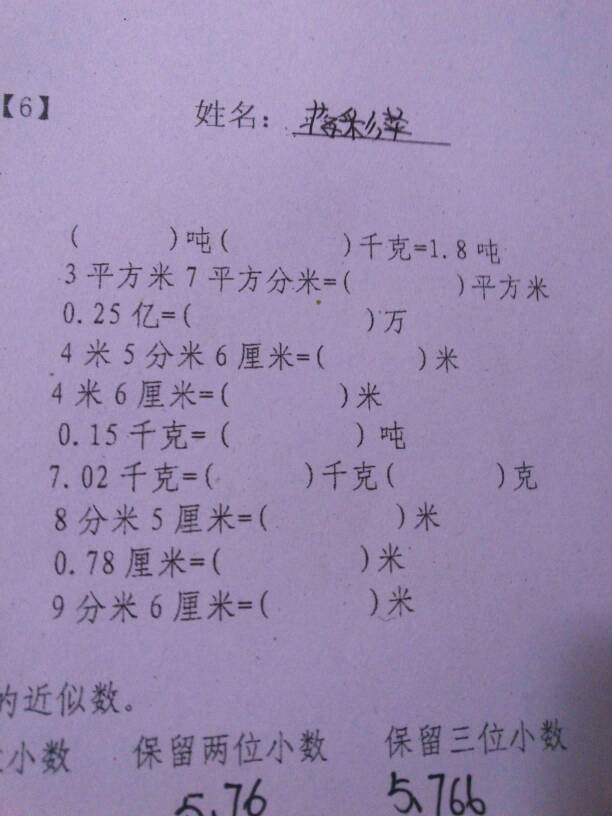 【6】 姓名：
(　　)吨(　　)千克=1.8吨
3平方米7平方分米=(　　)平方米
0.25亿=(　　)万
4米5分米6厘米=(　　)米
4米6厘米=(　　)米
0.15千克=(　　)吨
7.02千克=(　　)千克(　　)克
8分米5厘米=(　　)米
0.78厘米=(　　)米
9分米6厘米=(　　)米
的近似数。
位小数 保留两位小数 保留三位小数
5.76 5.766